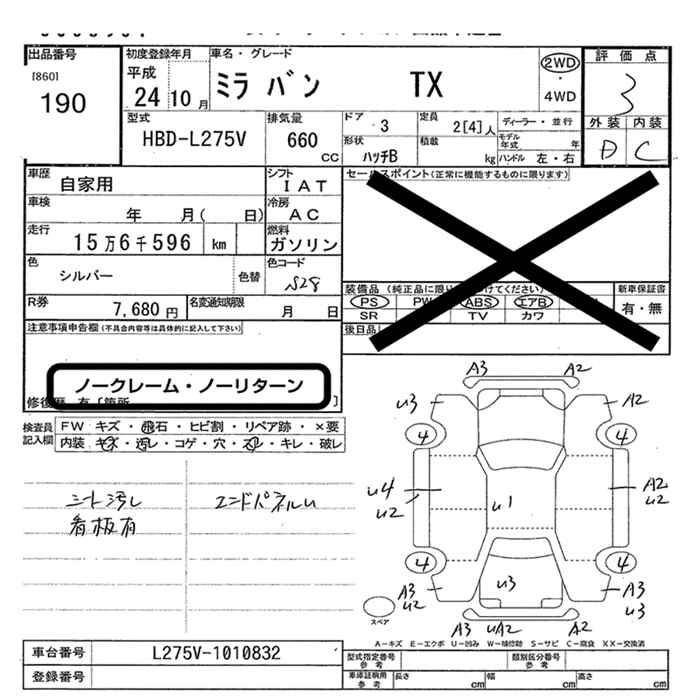 出品番号
[860]
190
初度登録年月
平成
24 10 月
車名・グレード
ミラ バン TX
2WD
・
4WD
評価点
3
外装 内装
D C
型式
HBD-L275V
排気量
660
cc
ドア 3
定員
2[4]人
ディーラー・並行
形状
ハッチB
積載
kg
モデル年式 年
ハンドル 左・右
車歴
自家用
シフト
IAT
車検
年 月( 日)
冷房
AC
走行
15万6千596 km
燃料
ガソリン
色
シルバー
色替
色コード
S28
R券
7,680 円
名変通知期限
月 日
セールスポイント(正常に機能するものに限ります)
装備品
PS PW ABS エアB
SR TV カワ
後日品
新車保証書
有・無
注意事項申告欄(不具合内容等は具体的に記入して下さい)
ノークレーム・ノーリターン
検査員記入欄
FW キズ・飛石・ヒビ割・リペア跡・×要
内装 キズ・汚レ・コゲ・穴・スレ・キレ・破レ
シート汚レ
看板有
エンドパネルu
A3 A2
u3 A2
4 4
u4 A2
u2 u1 u2
4 4
u3
A3 A3
u2 u3
スペア
A3 uA2 A2
A-キズ E-エクボ U-凹み W-補修跡 S-サビ C-腐食 XX-交換済
車台番号
L275V-1010832
登録番号
型式指定番号
参考
類別区分番号
参考
車庫証明用
参考
長さ cm
幅 cm
高さ cm